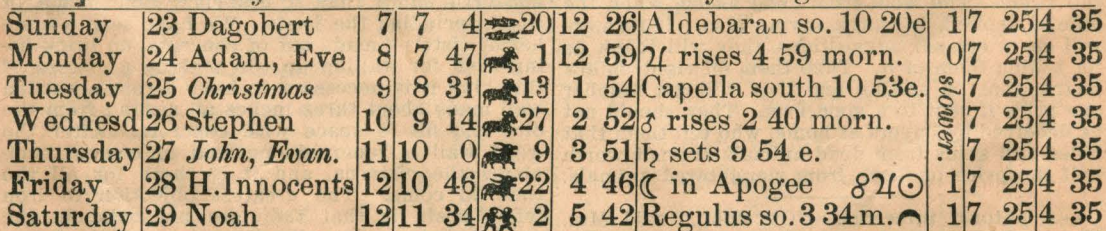 Sunday 23 Dagobert 7 7 4 20 12 26 Aldebaran so. 10 20e 1 7 25 4 35
Monday 24 Adam, Eve 8 7 47 1 12 59 ♃ rises 4 59 morn. 0 7 25 4 35
Tuesday 25 Christmas 9 8 31 13 1 54 Capella south 10 53e. slower. 7 25 4 35
Wednesd 26 Stephen 10 9 14 27 2 52 ♂ rises 2 40 morn. 7 25 4 35
Thursday 27 John, Evan. 11 10 0 9 3 51 ♄ sets 9 54 e. 7 25 4 35
Friday 28 H.Innocents 12 10 46 22 4 46 ☾ in Apogee 8♃☉ 1 7 25 4 35
Saturday 29 Noah 12 11 34 2 5 42 Regulus so. 3 34m. 1 7 25 4 35